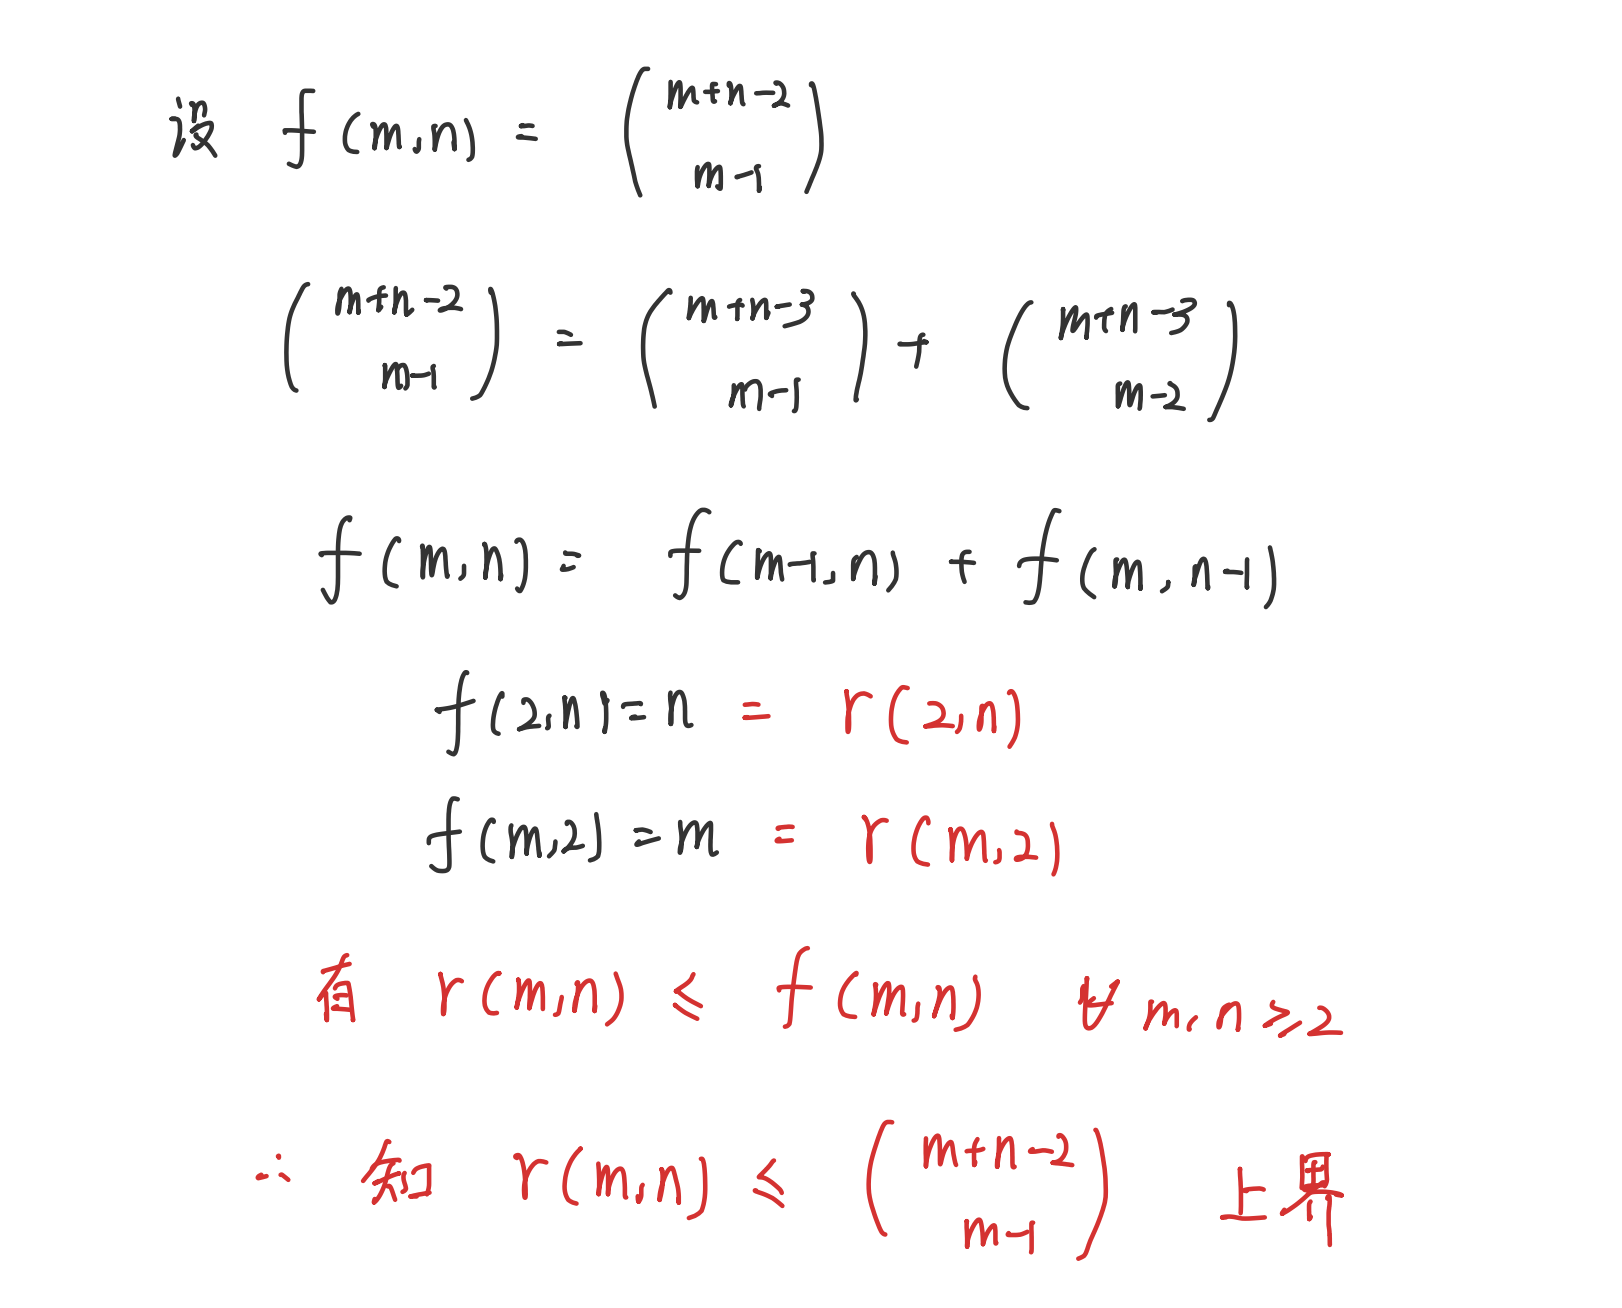 设 f(m,n) = \binom{m+n-2}{m-1}
\binom{m+n-2}{m-1} = \binom{m+n-3}{m-1} + \binom{m+n-3}{m-2}
f(m,n) = f(m-1,n) + f(m,n-1)
f(2,n) = n = r(2,n)
f(m,2) = m = r(m,2)
有 r(m,n) ≤ f(m,n) ∀ m,n ≥ 2
∴ 知 r(m,n) ≤ \binom{m+n-2}{m-1} 上界